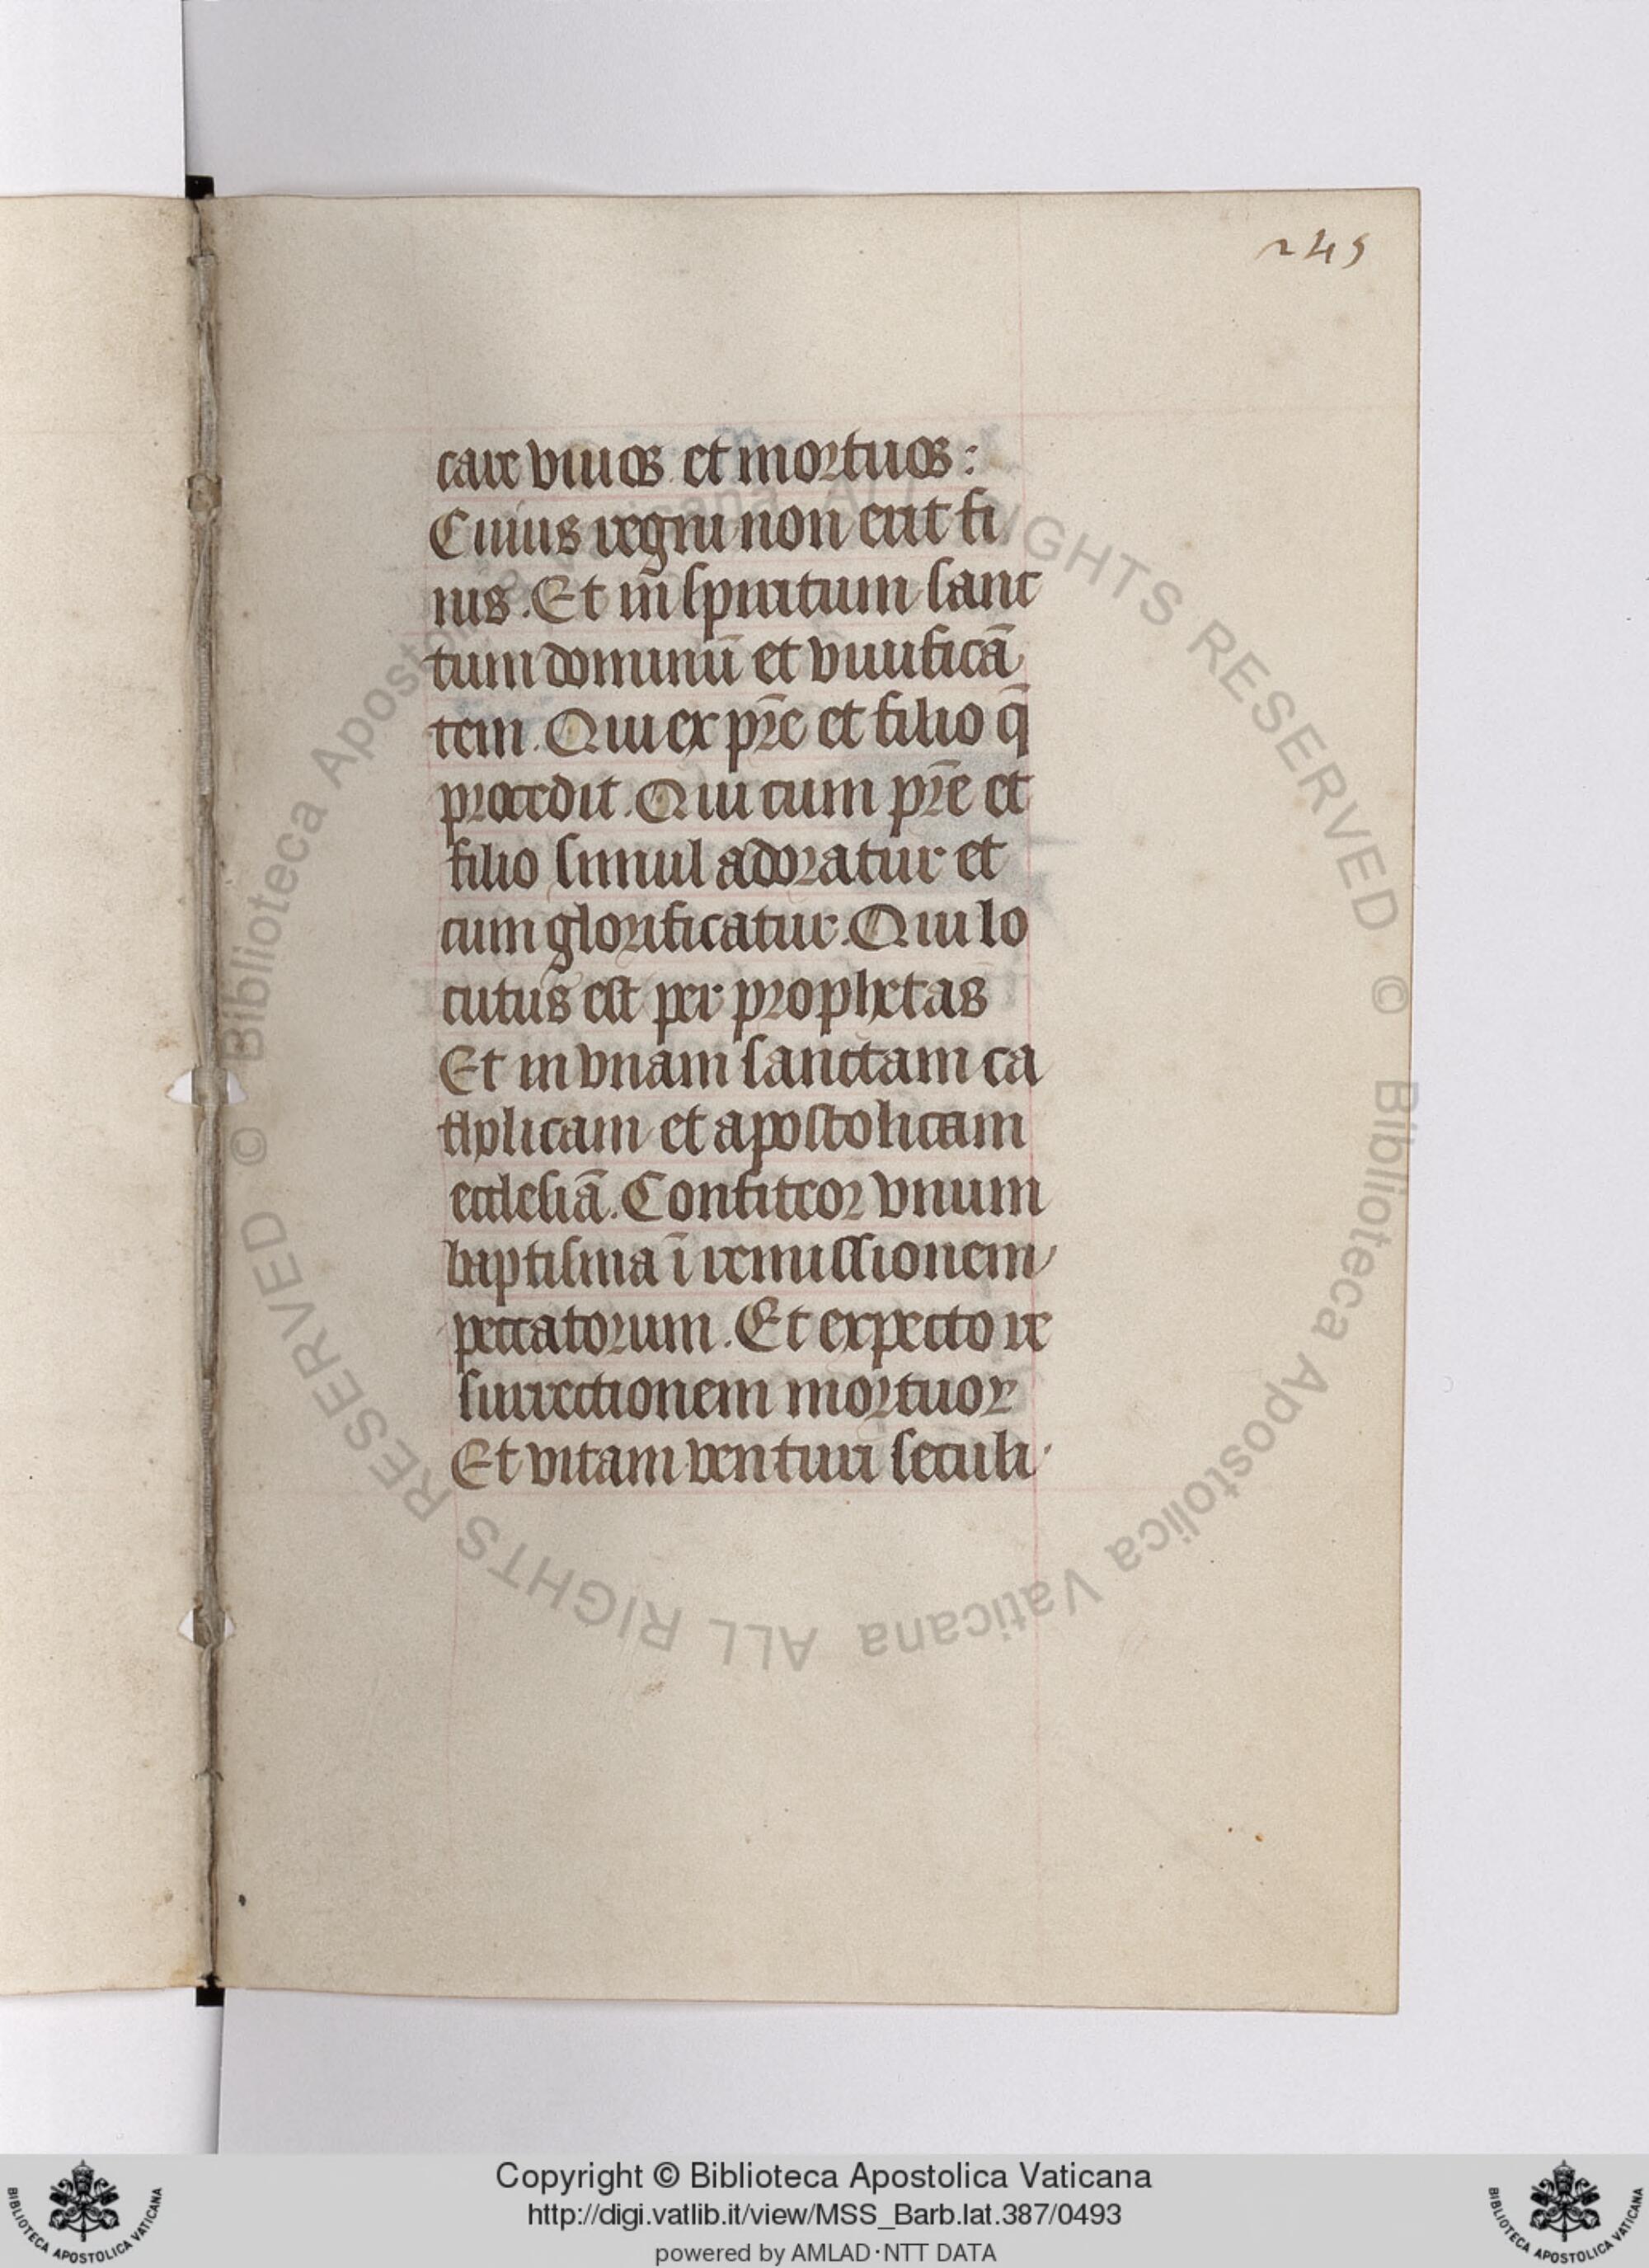 245
care viuos et mortuos:
Cuius regni non erit fi
nis. Et in spiritum sanc
tum dominū et viuificā
tem. Qui ex pr̄e et filio q̄
procedit. Qui cum pr̄e et
filio simul adoratur et
cum glorificatur. Qui lo
cutus est per prophetas
Et in vnam sanctam ca
tholicam et apostolicam
ecclesiā. Confiteor vnum
baptisma ī remissionem
peccatorum. Et expecto re
surrectionem mortuoꝝ
Et vitam venturi seculi
© Biblioteca Apostolica Vaticana ALL RIGHTS RESERVED
© Biblioteca Apostolica Vaticana ALL RIGHTS RESERVED
Copyright © Biblioteca Apostolica Vaticana
http://digi.vatlib.it/view/MSS_Barb.lat.387/0493
powered by AMLAD·NTT DATA
BIBLIOTECA APOSTOLICA VATICANA
BIBLIOTECA APOSTOLICA VATICANA